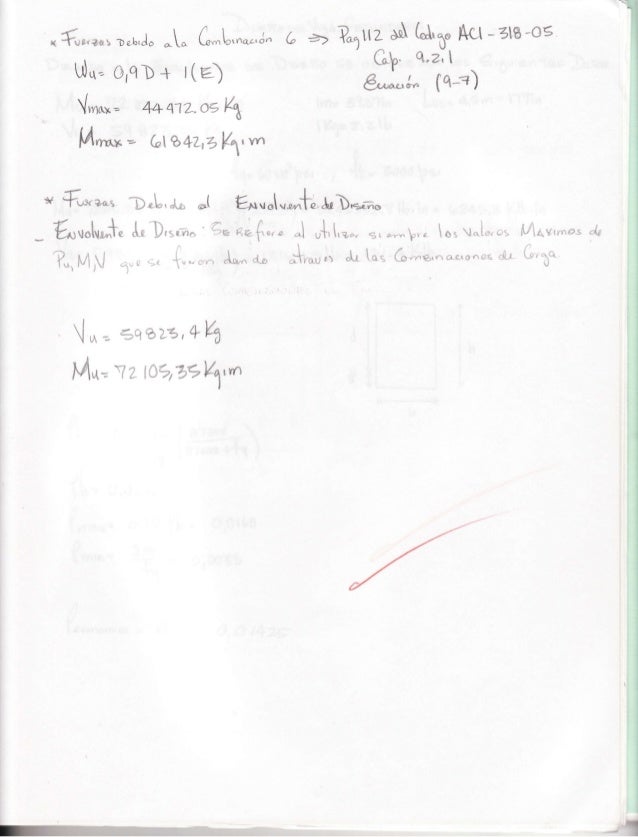 * Fuerzas Debido a la Combinación 6 => Pag 112 del Codigo ACI-318-05.
Cap: 9.2.1
Wu= 0,9D + 1(E)
Ecuación (9-7)
Vmax= 44472.05 Kg
Mmax = 61842,3 Kg.m
* Fuerzas Debido al Envolvente de Diseño
- Envolvente de Diseño: Se Refiere al utilizar siempre los Valores Maximos de
Pu, M, V que se fueron dando atraves de las Combinaciones de Carga
Vu= 59823,4 Kg
Mu= 72105,35 Kg.m